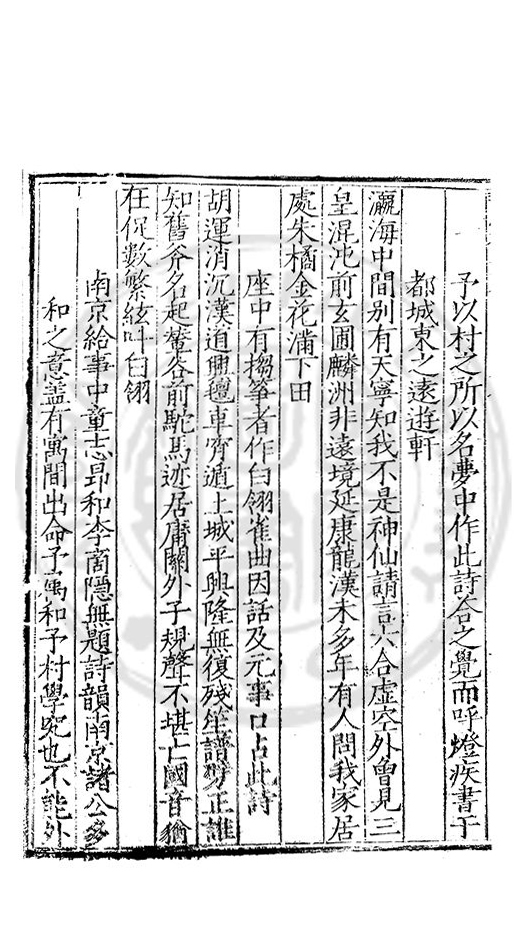 予以村之所以名夢中作此詩答之覺而呼燈疾書于
都城東之遠遊軒
瀛海中間別有天寧知我不是神仙請言六合虛空外曾見三
皇混沌前玄圃麟洲非遠境延康龍漢未多年有人問我家居
處朱橘金花滿下田
座中有搊箏者作白翎雀曲因話及元事口占此詩
胡運消沉漢道興氊車宵遁上城平興隆無復殘笙譜勞正誰
知舊斧名起輦谷前駝馬迹居庸關外子規聲不堪亡國音猶
在促數繁絃叫白翎
南京給事中童志昂和李商隱無題詩韻南京諸公多
和之意盖有寓間出命予屬和予村學究也不能外